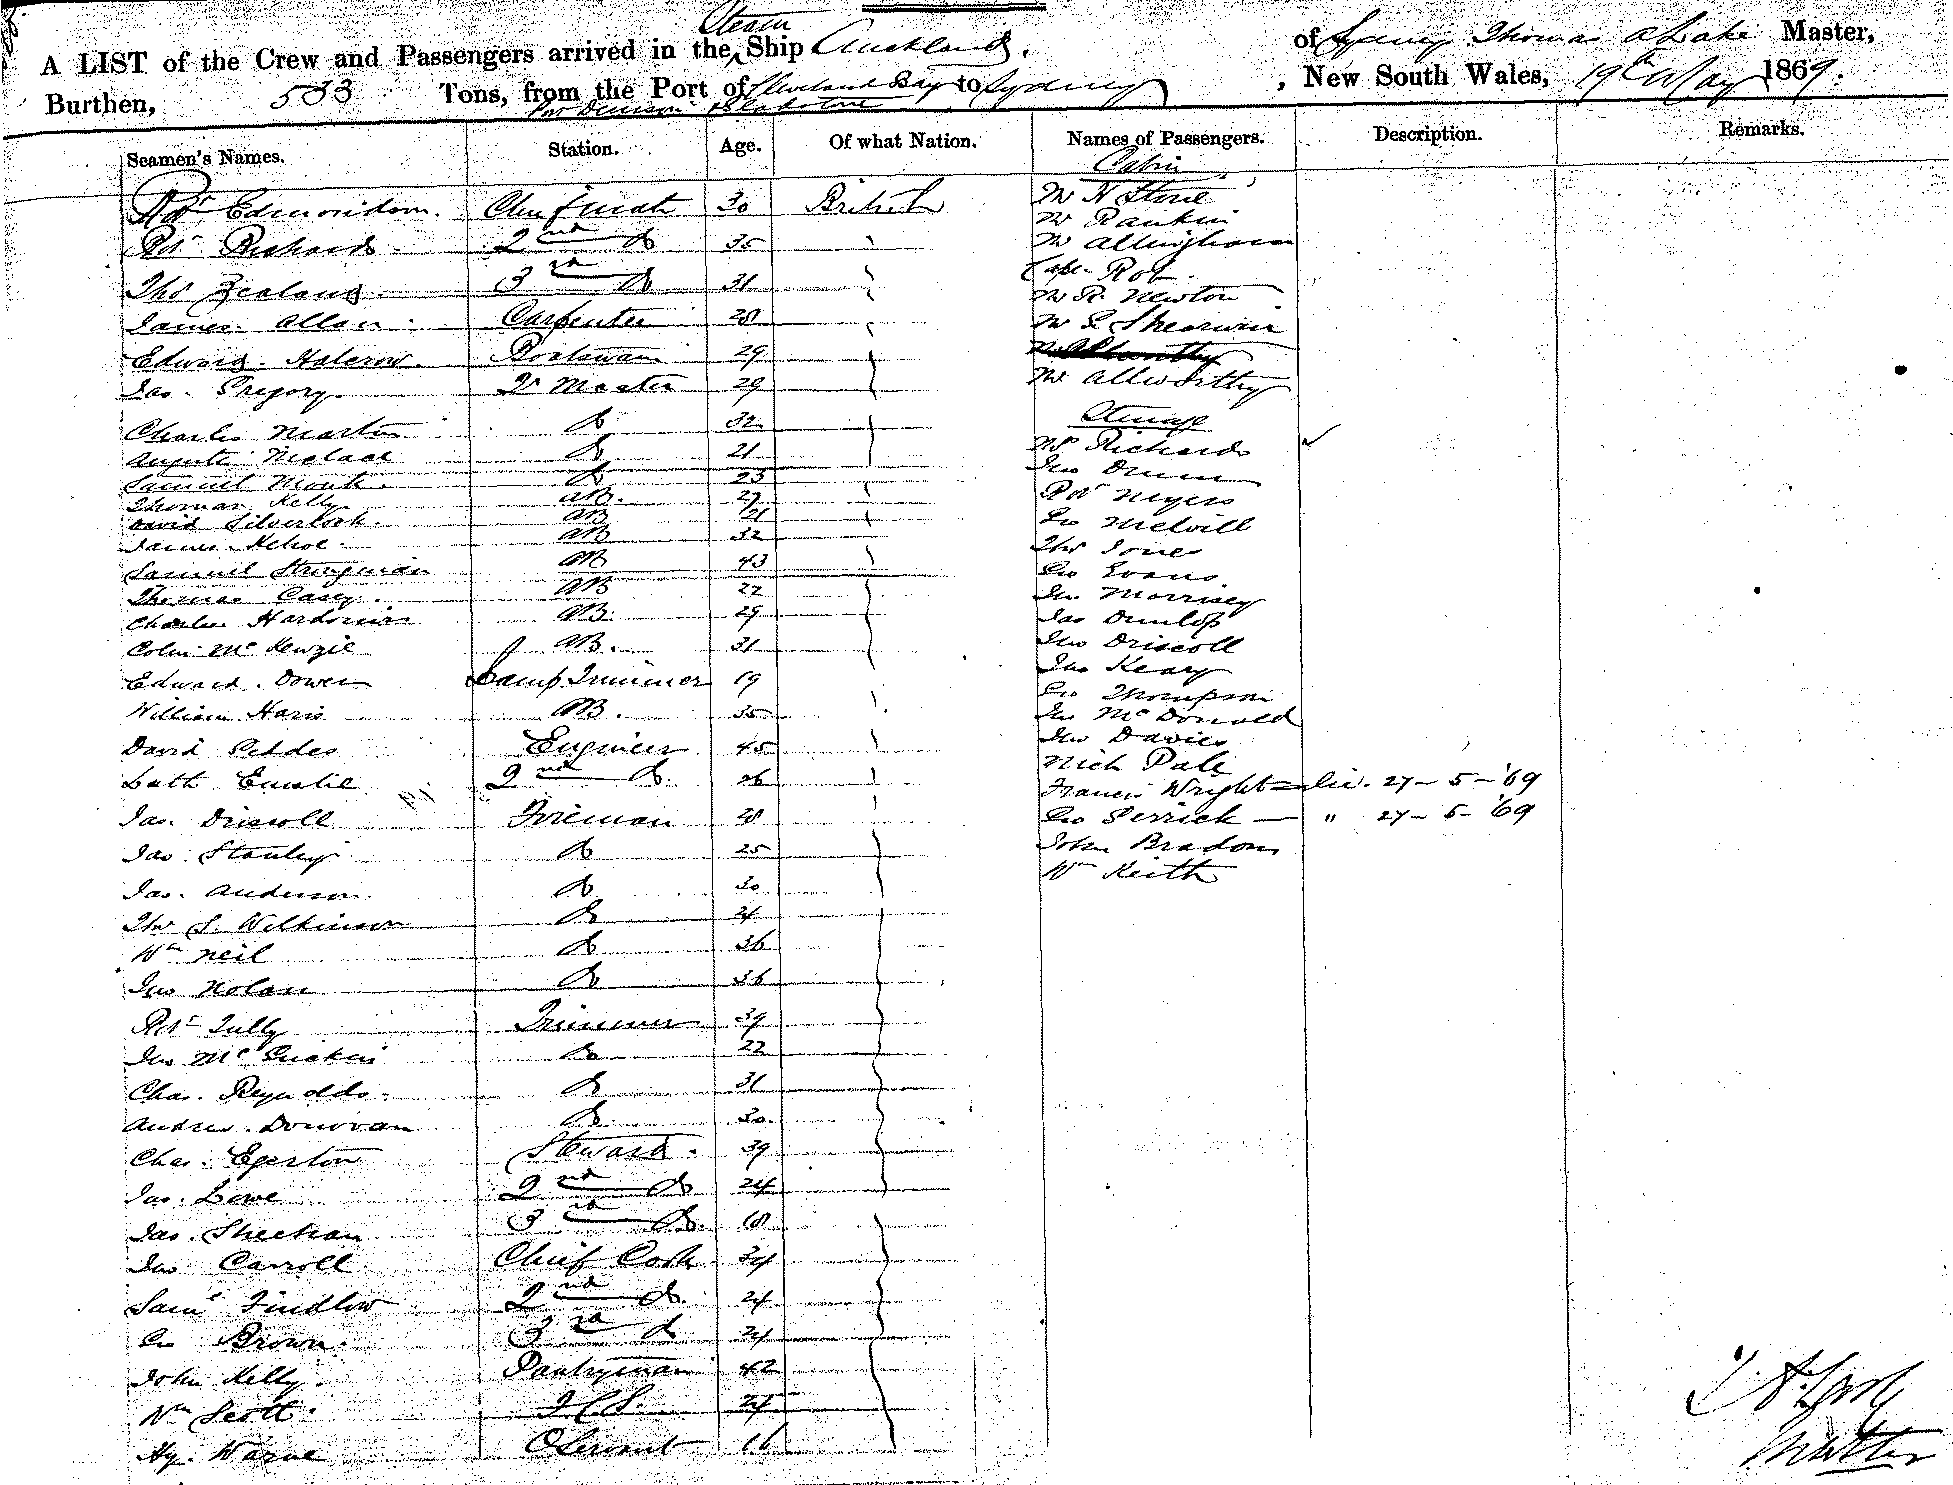 Steam
A LIST of the Crew and Passengers arrived in the Ship Auckland. of Sydney Thomas A Lake Master,
Burthen, 533 Tons, from the Port of Cleveland Bay to Sydney, New South Wales, 19th May 1869.
Port Denison & Gladstone
Seamen's Names. Station. Age. Of what Nation. Names of Passengers. Description. Remarks.
Cabin
Robt Edmondson. Chief mate 30 British Mr H Stone
Robt Richards 2nd Do 35 " Mr Rankin
Thos Zealand 3rd Do 31 " Mr Allingham
James Allan Carpenter 28 " Capt Rot
Edward Halcrow. Boatswain 29 Mr R. Newton
Jas. Gregory Qr Master 29 Mr S Shearwin
Charles Martin Do 32 Mr Allworthy
Auguste Do 21
Samuel Do 23
Thomas Kelly AB. 27
David Silverlock. AB 21
James Kehoe AB 32
Samuel AB 43
Thomas Casey. AB 22
Charles AB. 29
Colin McKenzie AB. 31
Edward Dower Lamp Trimmer 19
William Haris AB. 35
David Engineer 45
2nd Do. 26
Jas. Driscoll Fireman 28
Jas. Stanley Do 25
Jas. Anderson Do 30
Thos S. Wilkinson Do 24
Wm Neil Do 36
Jno Nolan Do 36
Robt Tully Trimmer 39
Jno Mc Do 22
Chas. Reynolds Do 31
Andrew Donovan Do 30
Chas. Egerton Steward. 39
Jas. Lowe 2nd Do 24
Jas. Sheehan 3rd Do. 18
Jno Carroll Chief Cook 34
Saml Findlow 2nd do. 24
Geo Brown 3rd do 24
John Kelly. Pantryman 42
Wm Scott. 24
Hy. Warne O Servant 16
Steerage
Mrs Richards
Jno Dunn
Robt Meyers
Geo Melvill
Thos Jones
Geo Evans
Jno Morrisey
Jas Dunlop
Jno Driscoll
Jno Keary
Geo Thompson
Jno McDonald
Jno Davies
Nich Pale
Francis Wright = lic. 27 - 5 - '69
Geo Perrick — " 27 - 5 - '69
John Bradon
Wm Keith
Master